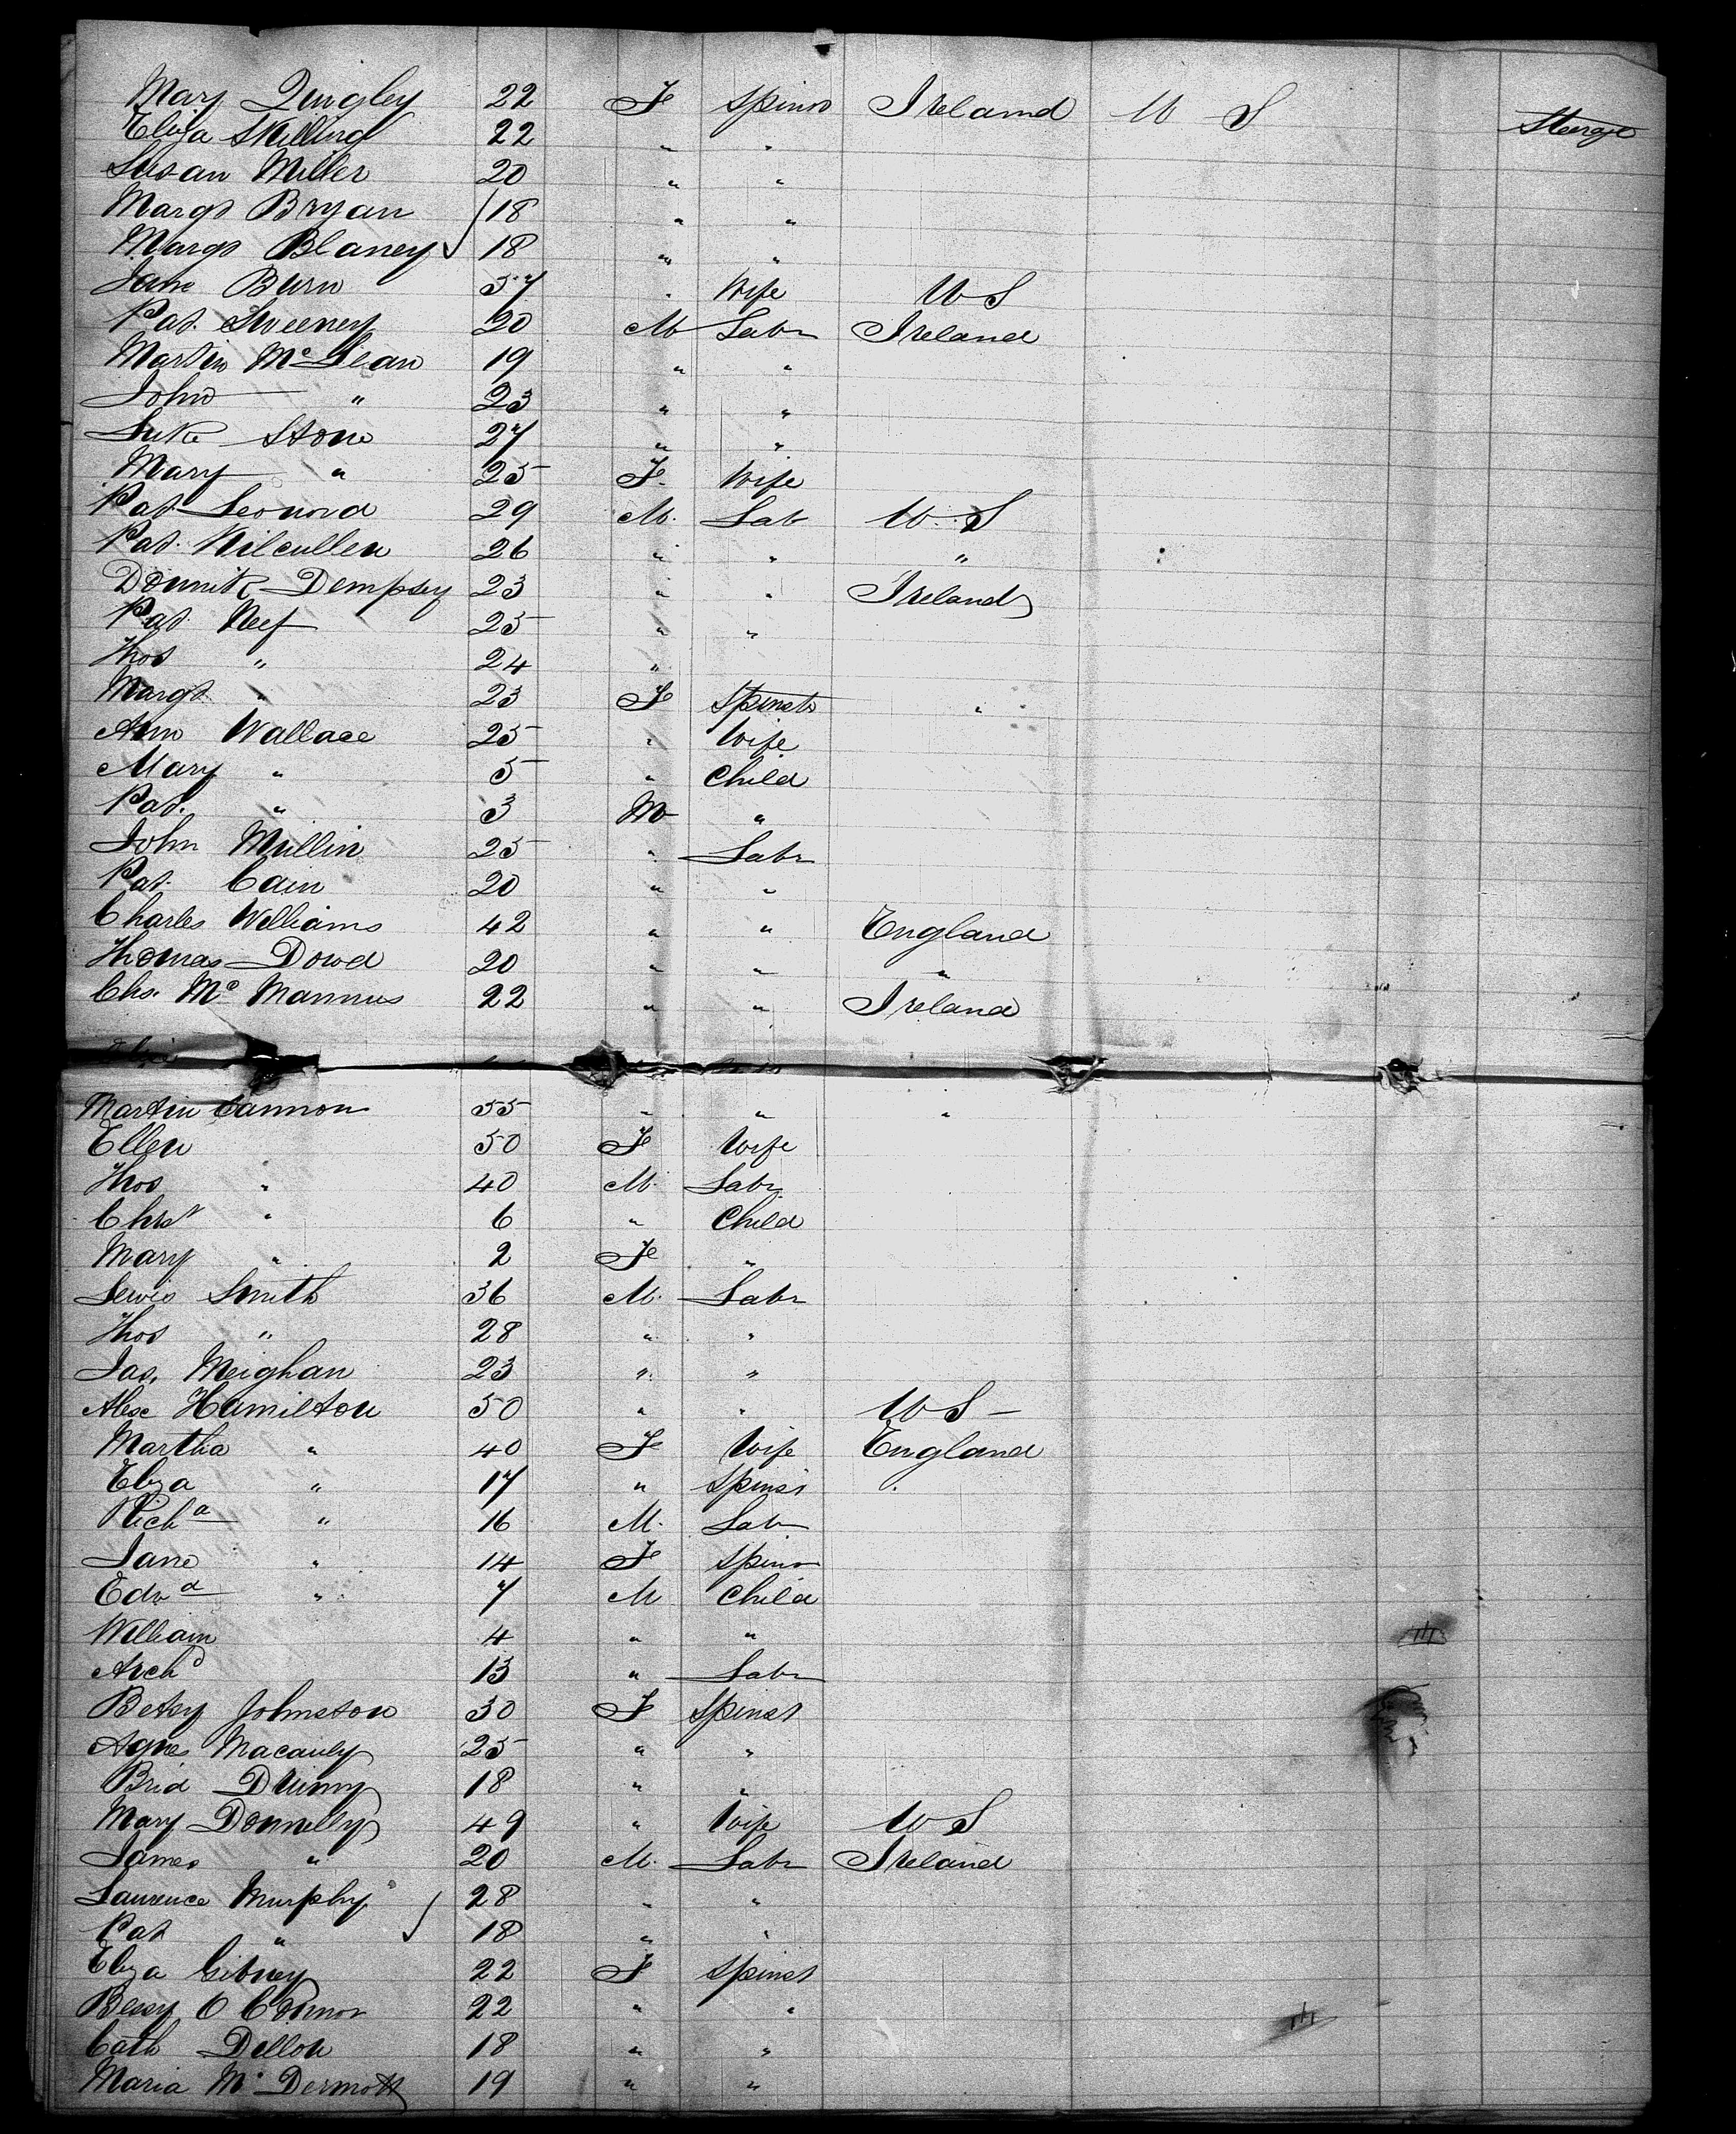 Mary Quigley 22 F Spins Ireland U S Steerage
Eliza Skilling 22 " "
Susan Miller 20 " "
Margt Bryan 18 " "
Margt Blaney 18 " "
Jane Burn 37 " Wife U S
Pat. Sweeney 20 M Labr Ireland
Martin McLean 19 " "
John " 23 " "
Luke Stone 27 " "
Mary " 25 F. Wife
Pat. Leonard 29 M. Lab U. S
Pat. Kilcullen 26 " " "
Dominik Dempsey 23 " " Ireland
Pat. Neef 25 " "
Thos " 24 "
Margt " 23 F Spinstr "
Ann Wallace 25 " Wife
Mary " 5 " Child
Pat. " 3 M "
John Mullin 25 " Labr
Pat. Cain 20 " "
Charles Williams 42 " " England
Thomas Dowd 20 " " "
Chs. McMannus 22 " " Ireland
Martin Cannon 55 " " "
Ellen 50 F Wife
Thos " 40 M. Labr
Christ " 6 " Child
Mary " 2 F "
Lewis Smith 36 M. Labr
Thos " 28 " "
Jas. Meighan 23 " "
Alex Hamilton 50 " " U S -
Martha " 40 F Wife England
Eliza " 17 " Spinst
Richd " 16 M. Lab
Jane " 14 F Spins
Edwd " 7 M Child
William 4 " "
Archd 13 " Labr
Betsy Johnston 30 F Spinst
Agnes Macauly 25 " "
Brid 18 " "
Mary Donnelly 49 " Wife U S
James " 20 M. Labr Ireland
Laurence Murphy 28 " "
Pat " 18 " "
Eliza Gibney 22 F Spinst
Bessy O Connor 22 " "
Cath Dillon 18 " "
Maria McDermott 19 " "